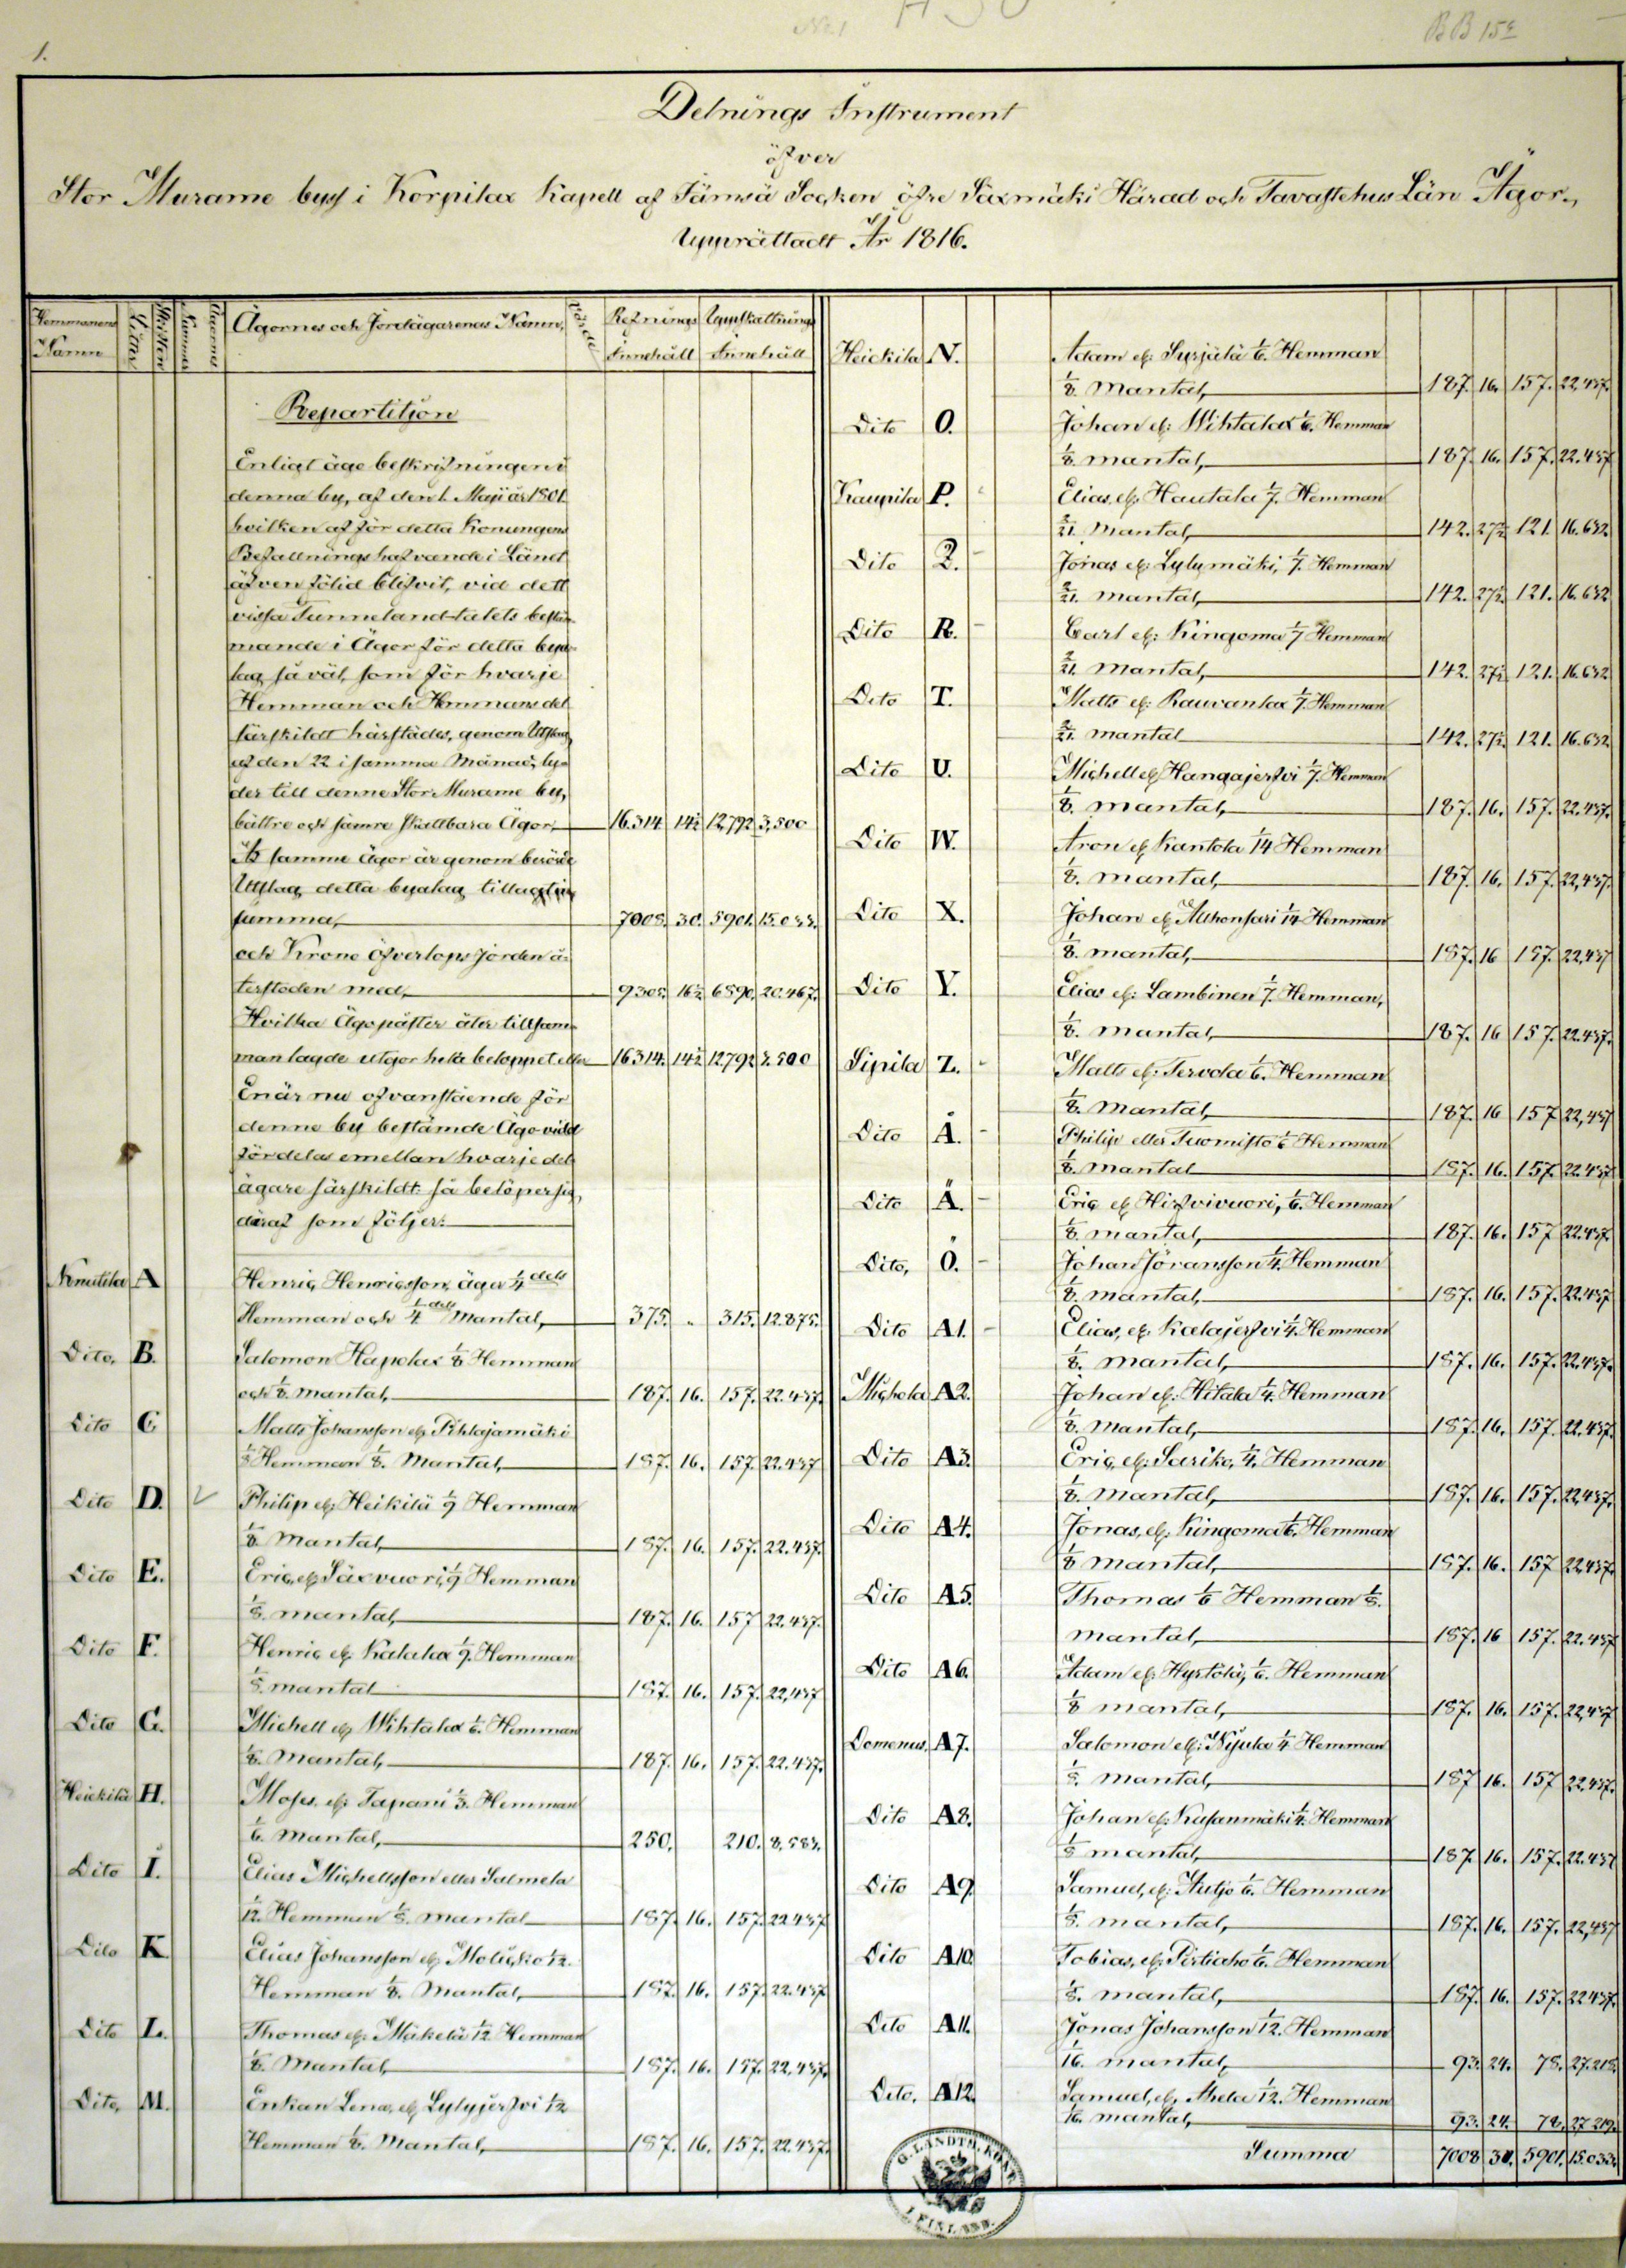 1.
BB 15
Delnings Instrument
öfver
Stor Murame by i Korpilax Kapell af Jämsä Socken öfre Säxmäki Härad och Tavastehus Län Ägor,
Upprättadt År 1816.
Hemmanens Namn
Ägornes och Jordägarenas Namn,
Refnings Innehåll
Uppskattnings Innehåll
Repartition
Enligt äge beskrifningen i
denna by, af den 1. Maji år 1801.
hvilken af för detta Konungens
Befallningshafvande i Länet
äfven följd blifvit, vid dett
vissa Tunneland-talets bestäm-
mande i Ägor för detta bya-
lag så väl, som för hvarje
Hemman och Hemmans del
särskildt härstädes, genom Utslag
af den 22 i samma Månad, ly-
der till denne Stor Murame by,
bättre och sämre skattbara Ägor, 16.314 14½ 12,792 3,500
Af samme Ägor är genom berörde
Utslag detta byalag tillagt en
summa, 7008. 30. 5901. 15.033.
och Krono öfverlops jorden å-
terstoden med, 9305. 16½ 6890. 20.467.
Hvilka Ägopåster åter tillsam-
manlagde utgör hela beloppet eller 16314. 14½ 12792 3.500
Enär nu ofvanstående för
denne by bestämde Ägo-vidd
fördelas emellan hvarje del
ägare särskildt så belöper sig
däraf som följer:
A Henric Henricsson, äger ¼ dels
Hemman och ¼ dels Mantal, 375. „ 315. 12.875.
Dito, B. Salomon Hapolax ⅛ Hemman
och ⅛. Mantal, 187. 16. 157. 22.437.
Dito C Matts Johansson ell: Pihlajamäki
Hemman ⅛. Mantal, 187. 16. 157. 22.437
Dito D. Philip ell: Heikilä 1/9 Hemman
⅛. Mantal, 187. 16. 157. 22.437.
Dito E. Eric, ell: Säxvuori, 1/9 Hemman
⅛. mantal, 187. 16. 157 22.437.
Dito F. Henric ell: Kalalax 1/9. Hemman
⅛. mantal 187. 16. 157. 22,437
Dito G. Michell ell: Wihtalax 1/6. Hemman
⅛. Mantal, 187. 16. 157. 22.437.
Heickilä H. Moses, ell: Tapani 1/3. Hemman
1/6. Mantal, 250. 210. 8,583.
Dito I. Elias Michellsson eller Salmela
1/12. Hemman ⅛. mantal 187. 16. 157. 22.437
Dito K Elias Johansson ell: 1/12.
Hemman ⅛. Mantal, 187. 16. 157. 22.437
Dito L. Thomas ell: Mäkelä 1/12 Hemman
⅛. Mantal, 187. 16. 157. 22,437.
Dito, M. Enkan Lena, ell: Lylyjerfvi 1/12
Hemman ⅛. Mantal, 187. 16. 157. 22.437.
Heickila N. Adam ell: Surjulä 1/6. Hemman
⅛. Mantal, 187. 16. 157. 22,437.
Dito O. Johan ell: Wihtalax 1/6. Hemman
⅛. mantal, 187. 16. 157. 22.437
Kaupila P. Elias, ell: Hautala 1/7. Hemman
2/21. Mantal, 142. 27½ 121. 16.632
Dito Q. Jonas ell: Lylymäki, 1/7. Hemman
2/21. mantal, 142. 27½. 121. 16.632
Dito R. Carl ell: Kingoma 1/7 Hemman
2/21. mantal, 142. 27½ 121. 16.632
Dito T. Matts ell: Rauvanlax 1/7. Hemman
2/21. mantal 142. 27½. 121. 16.632
Dito U. Michell ell: Hangajerfvi 1/7. Hemman
⅛. mantal, 187. 16. 157. 22.437.
Dito W. Aron ell: Kantola 1/14 Hemman
⅛. mantal, 187. 16. 157. 22,437.
Dito X. Johan ell: 1/14 Hemman
⅛. mantal, 187. 16 157. 22,437
Dito Y. Elias ell: Lambinen 1/7. Hemman,
⅛. mantal, 187. 16 157. 22.437.
Sipila Z. Matts ell: Tervola 1/6. Hemman
⅛. mantal, 187. 16 157 22,437
Dito Å. Philip eller Tuomisto 1/6 Hemman
⅛. mantal 187. 16. 157. 22.437
Dito Ä. Eric ell: Hirfvivuori, 1/6. Hemman
⅛. mantal, 187. 16. 157 22.437.
Dito, Ö. Johan Jöransson ¼. Hemman
⅛. mantal, 187. 16. 157. 22.437
Dito A1. Elias, ell: Kalajerfvi ¼. Hemman
⅛. mantal, 187. 16. 157. 22.437.
Michola A2. Johan ell: Hitala ¼. Hemman
⅛. Mantal, 187. 16. 157. 22.437.
Dito A3. Eric, ell: Sariko, ¼. Hemman
⅛. mantal, 187. 16. 157. 22,437.
Dito A4. Jonas, ell: Kingoma 1/6. Hemman
⅛ mantal, 187. 16. 157 22,437.
Dito A5. Thomas 1/6 Hemman ⅛.
mantal, 187. 16 157. 22.437
Dito A6. Adam ell: Hyrtölä, 1/6. Hemman
⅛ mantal, 187. 16. 157. 22,437
Domenus, A7. Salomon ell: Nijula ¼ Hemman
⅛. mantal, 187 16. 157 22,437.
Dito A8. Johan ell: Kusanmäki ¼. Hemman
⅛ mantal, 187. 16. 157. 22.437
Dito A9. Samuel, ell: Autjo 1/6. Hemman
⅛. mantal, 187. 16. 157. 22,437
Dito A10. Tobias, ell: Pirtiaho 1/6. Hemman
⅛. mantal, 187. 16. 157. 22437.
Dito A11. Jonas Johansson 1/12. Hemman
1/16. mantal, 93. 24. 78. 27.218.
Dito, A12. Samuel, ell: Ahela 1/12. Hemman
1/16. mantal, 93. 24. 78. 27.219.
Summa 7008 30. 5901. 15.033.
G. LANDTM. KONT.
I FINLAND.